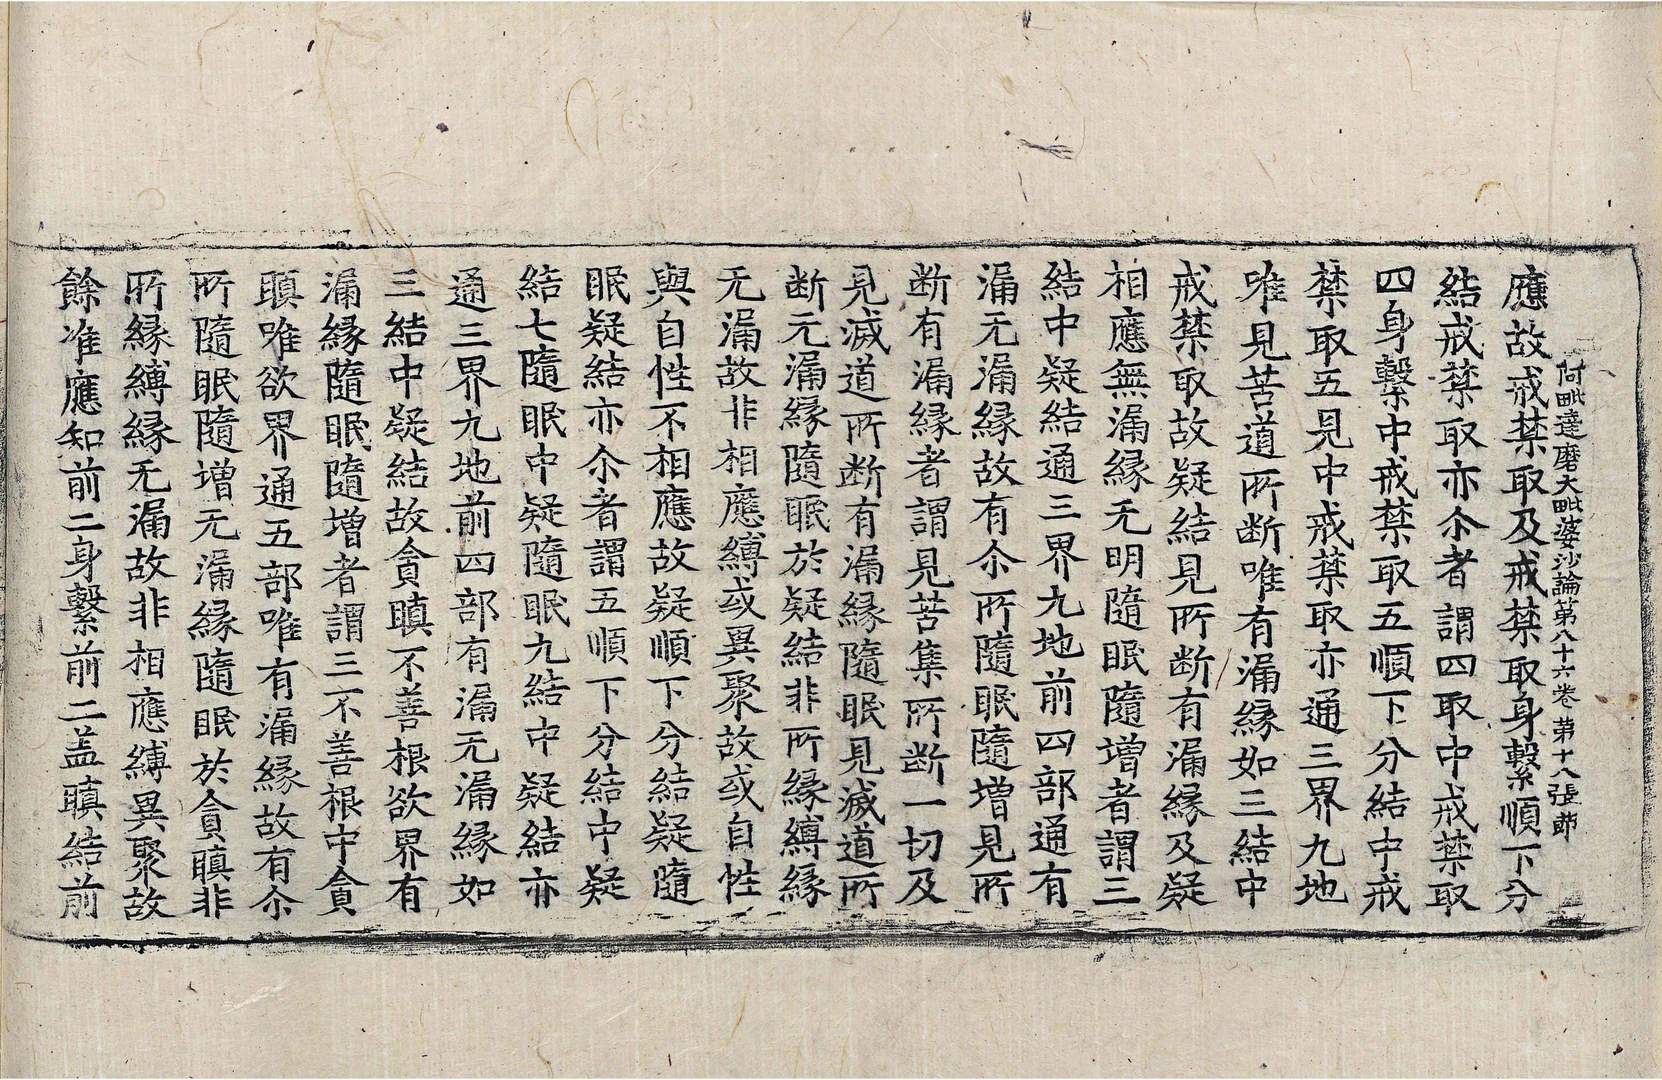 應故戒禁取及戒禁取身繫順下分
阿毗達磨大毗婆沙論第八十六卷 第十八張 節
結戒禁取亦尒者謂四取中戒禁取
四身繫中戒禁取五順下分結中戒
禁取五見中戒禁取亦通三界九地
唯見苦道所断唯有漏縁如三結中
戒禁取故疑結見所断有漏縁及疑
相應無漏縁无明隨眠隨增者謂三
結中疑結通三界九地前四部通有
漏无漏縁故有尒所隨眠隨增見所
断有漏縁者謂見苦集所断一切及
見滅道所断有漏縁隨眠見滅道所
断无漏縁隨眠於疑結非所縁縛縁
无漏故非相應縛或異聚故或自性
與自性不相應故疑順下分結疑隨
眠疑結亦尒者謂五順下分結中疑
結七隨眠中疑隨眠九結中疑結亦
通三界九地前四部有漏无漏縁如
三結中疑結故貪瞋不善根欲界有
漏縁隨眠隨增者謂三不善根中貪
瞋唯欲界通五部唯有漏縁故有尒
所隨眠隨增无漏縁隨眠於貪瞋非
所縁縛縁无漏故非相應縛異聚故
餘准應知前二身繫前二盖瞋結前